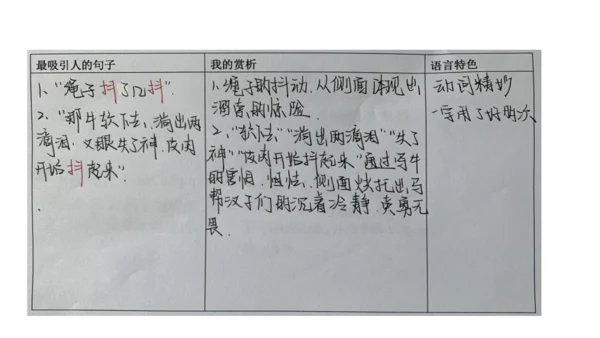 最吸引人的句子
我的赏析
语言特色
1、“绳子抖了几抖”.
2、“那牛软下去、淌出两
滴泪、又眼失了神,皮肉
开始抖起来”.
1、绳子的抖动,从侧面体现出
溜索的惊险.
2、“软下去”“淌出两滴泪”“失了
神”“皮肉开始抖起来”通过写牛
的害怕、怛怯、侧面烘托出马
帮汉子们的沉着冷静、英勇无
畏.
动词精妙
一字用了好几次